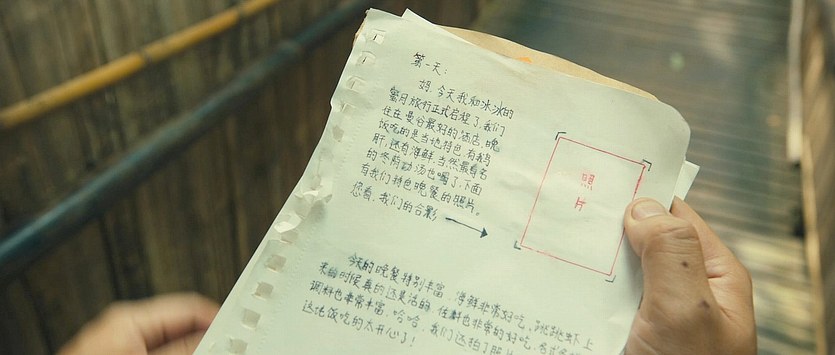 第一天：
妈，今天我和冰冰的
蜜月旅行正式启程了，我们
住在曼谷最好的酒店，晚
饭吃的是当地特色，有鹅
肝，还有海鲜，当然最著名
的冬阴功汤也喝了，下面
有我们特色晚餐的照片。
您看，我们的合影
照
片
今天的晚餐特别丰富，海鲜非常好吃，跳跳虾上
来的时候真的还是活的，佐料也非常的好吃，
调料也非常丰富，哈哈，我们还拍了照片
这次饭吃的太开心了！